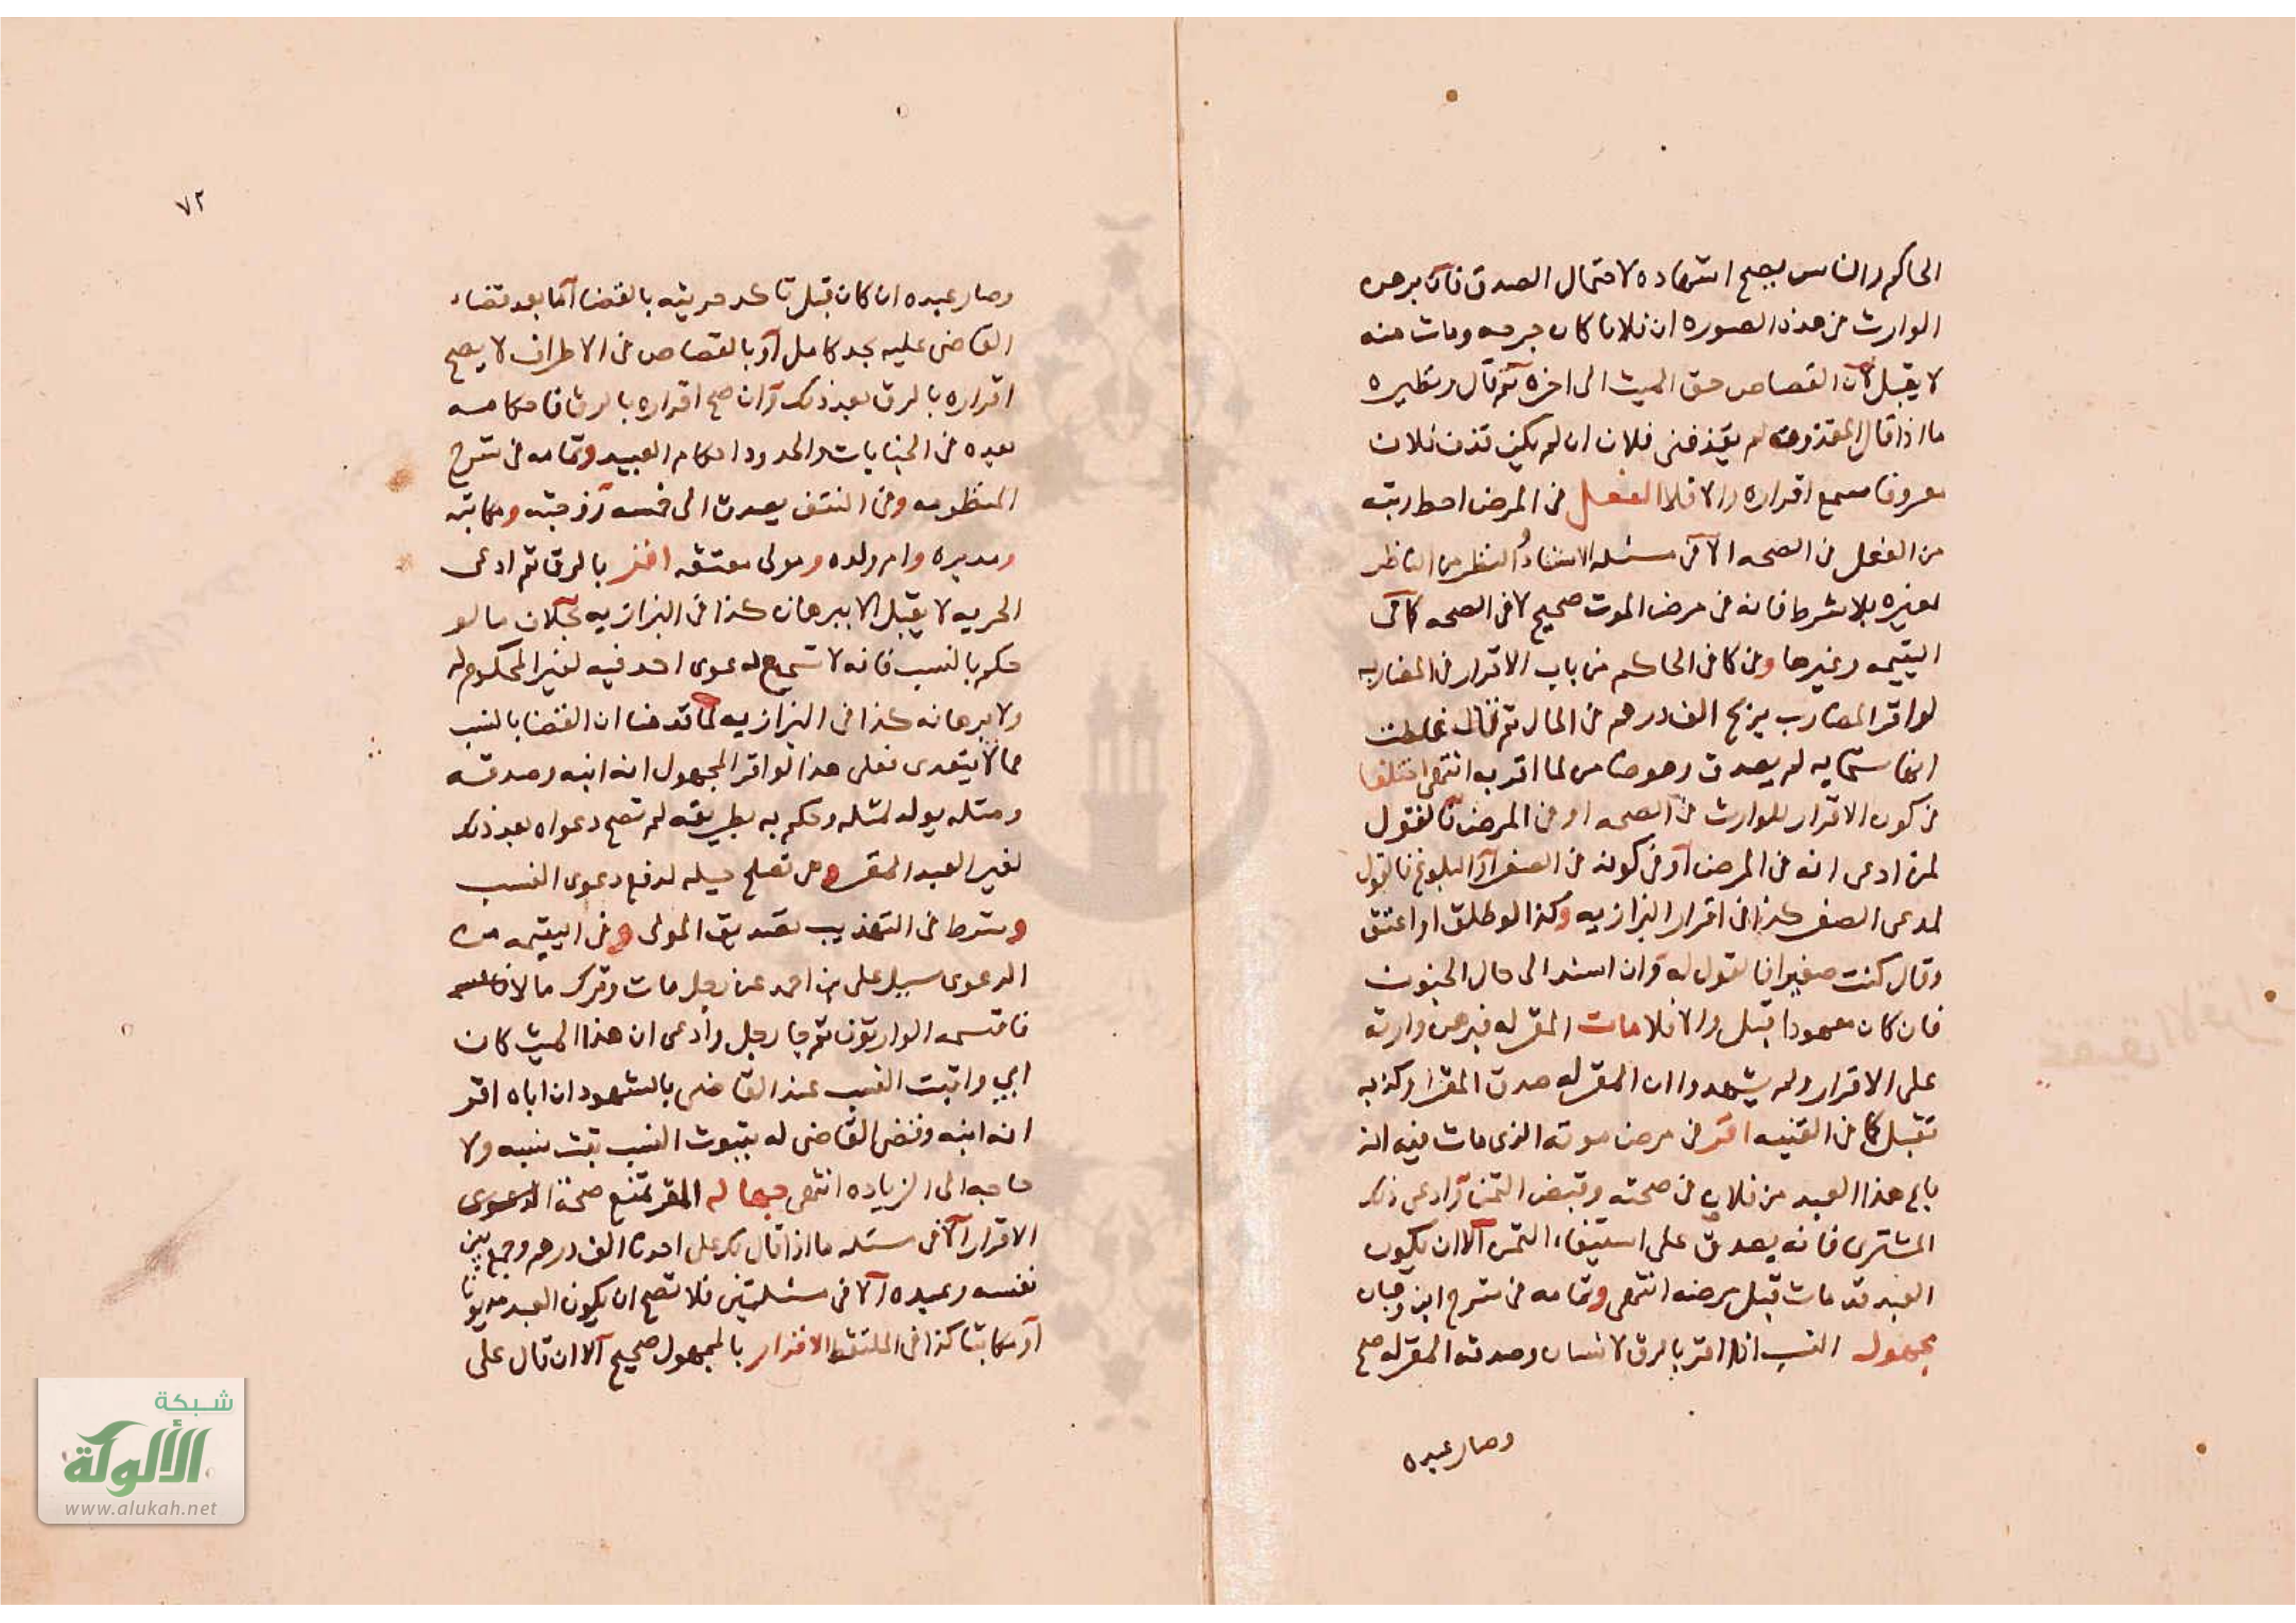 الحاكم والناس يصح اشهاده لاحتمال الصدق فان برهن
الوارث في هذه الصورة ان فلانا كان جرحه ومات منه
لا يقبل لان القصاص حق الميت الى اخره ثم قال ونظيره
ما اذا قال المقذوف لم يقذفني فلان ان لم يكن قذف فلان
معروفا يسمع اقراره والا فلا الفعل في المرض احط رتبه
من الفعل في الصحه الا في مسئله الاسناد النظر من الناظر
لغيره بلا شرط فانه في مرض الموت صحيح لا في الصحه كما في
اليتيمه وغيرها وفي كافي الحاكم من باب الاقرار في المضاربه
لو اقر المضارب بربح الف درهم في المال ثم قال غلطت
انها ستمايه لم يصدق وهو ضامن لما اقر به انتهى اختلفا
في كون الاقرار للوارث في الصحه او في المرض فالقول
لمن ادعى انه في المرض او في كونه في الصغر او البلوغ فالقول
لمدعى الصغر كذا في اقرار البزازيه وكذا لو طلق او اعتق
وقال كنت صغيرا فالقول له وان اسند الى حال الجنون
فان كان معهودا قبل والا فلا مات المقر له فبرهن وارثه
على الاقرار ولم يشهدوا ان المقر له صدق المقر او كذبه
تقبل كما في القنيه اقر في مرض موته الذى مات فيه انه
باع هذا العبد من فلان في صحته وقبض الثمن وادعى ذلك
المشترى فانه يصدق على استيفاء الثمن الا ان يكون
العبد قد مات قبل مرضه انتهى وتمامه في شرح ابن وهبان
مجهول النسب اذا اقر بالرق لانسان وصدقه المقر له صح
وصار عبده
٧٢
وصار عبده ان كان قبل تاكد حريته بالقضا اما بعد قضاء
القاضى عليه بحد كامل او بالقصاص في الاطراف لا يصح
اقراره بالرق بعد ذلك وان صح اقراره بالرق فاحكامه
بعده في الجنايات والحدود احكام العبيد وتمامه في شرح
المنظومه وفي النتف يصدق الى خمسه زوجته ومكاتبه
ومدبره وام ولده ومولى معتقه اقر بالرق ثم ادعى
الحريه لا يقبل الا ببرهان كذا في البزازيه بخلاف ما لو
حكم بالنسب فانه لا تسمع دعوى احد فيه لغير المحكوم له
ولا برهانه كذا في البزازيه لما قدمنا ان القضا بالنسب
مما لا يتعدى فعلى هذا لو اقر المجهول انه ابنه وصدقه
ومثله يولد لمثله وحكم به بطريقه لم تصح دعواه بعد ذلك
لغير العبد المقر وهى تصلح حيله لدفع دعوى النسب
وشرط في التهذيب تصديق المولى وفي اليتيمه من
الدعوى سيل على بن احمد عن رجل مات وترك مالا
فاقتسمه الوارثون ثم جا رجل وادعى ان هذا الميت كان
ابي واثبت النسب عند القاضى بالشهود ان اباه اقر
انه ابنه وقضى القاضى له بثبوت النسب ثبت نسبه ولا
حاجه الى الزياده انتهى جهاله المقر تمنع صحة الدعوى
الاقرار الا في مسئله ما اذا قال لك على احدنا الف درهم وجمع بين
نفسه وعبده الا في مسئلتين فلا تصح ان يكون العبد مديونا
او مكاتبا كذا في الملتقط الاقرار بالمجهول صحيح الا ان قال على
شبكة
الألوكة
www.alukah.net